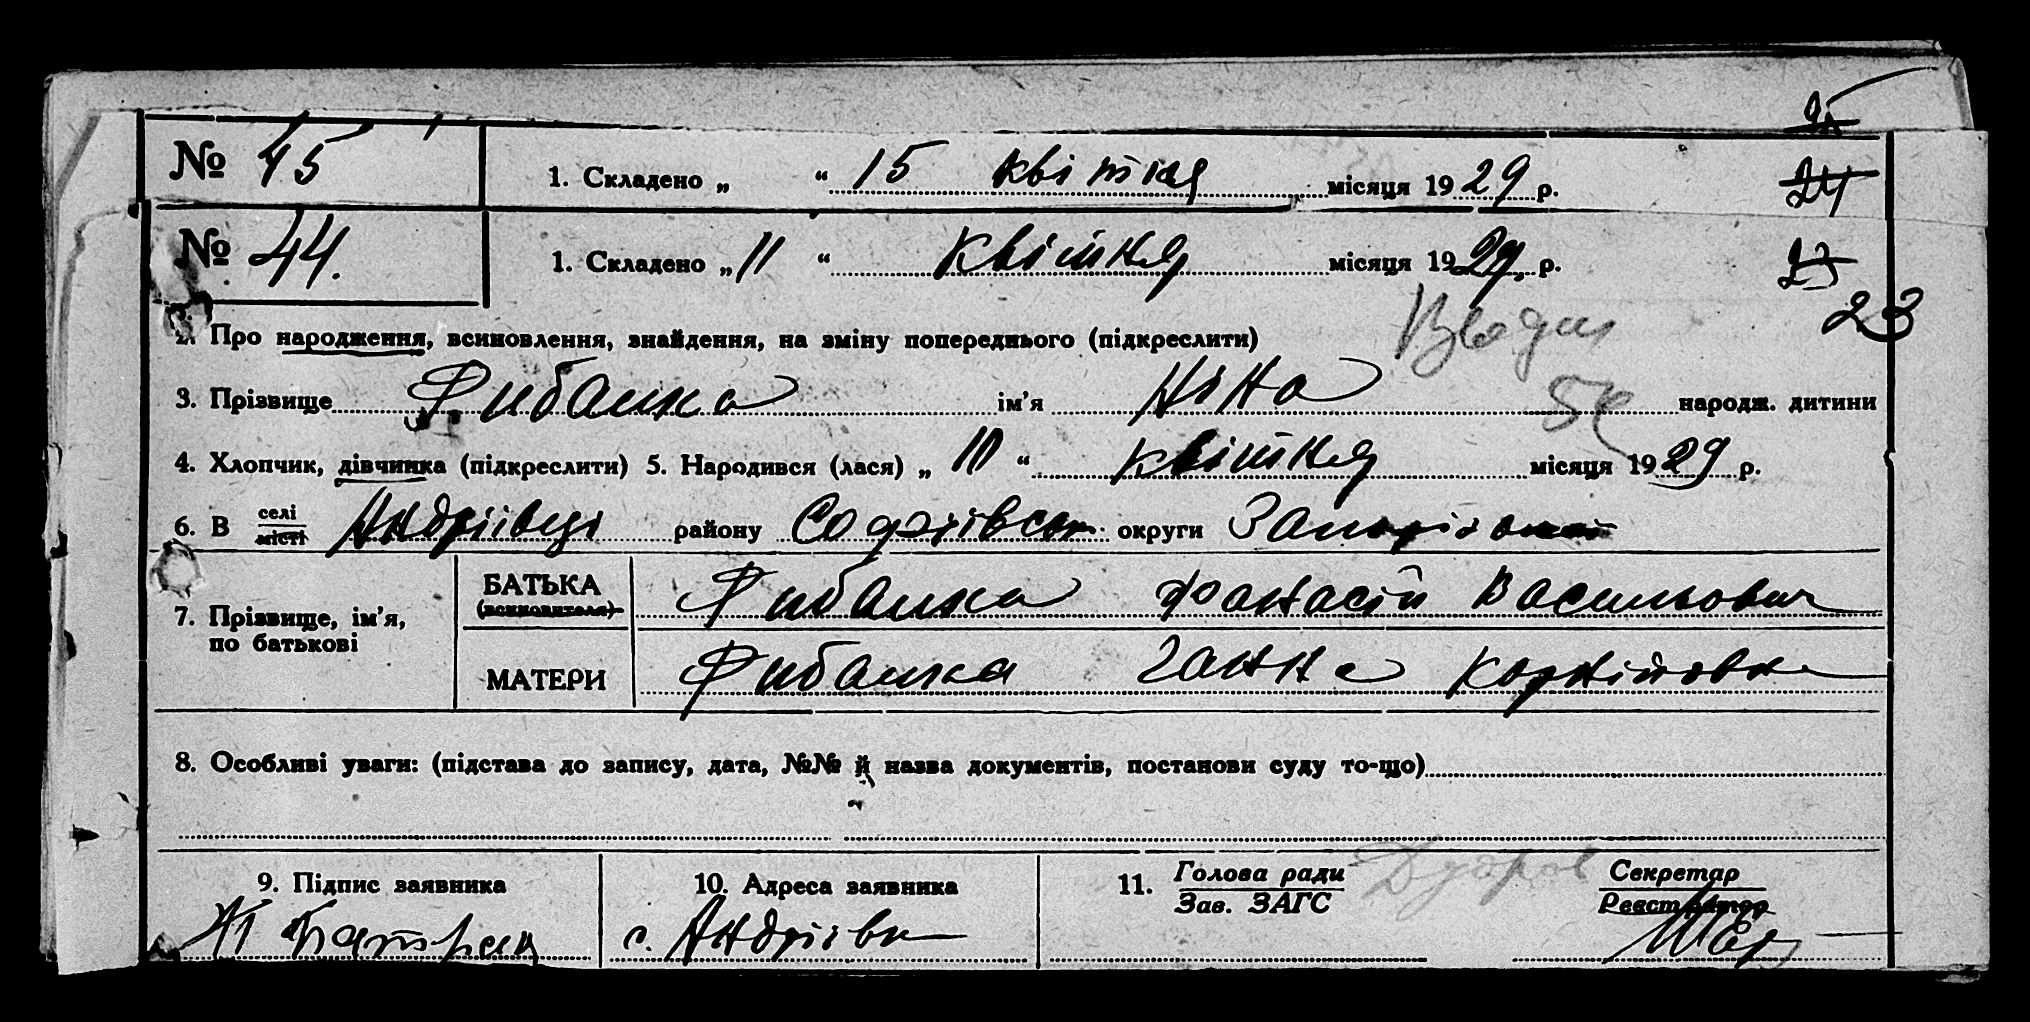 25
№ 45 1. Складено „ “ 15 квітня місяця 1929 р. 24
№ 44. 1. Складено „11 “ квітня місяця 1929 р. 23
23
2. Про народження, всиновлення, знайдення, на зміну попереднього (підкреслити)
3. Прізвище Рибалка ім'я Ніна народж. дитини
4. Хлопчик, дівчинка (підкреслити) 5. Народився (лася) „ 10 “ квітня місяця 1929 р.
6. В селі місті Андріївці району Софіївськ округи Запорізької
7. Прізвище, ім'я, по батькові
БАТЬКА (всиновителя) Рибалка Фанасій Васильович
МАТЕРИ Рибалка Ганна Корніївна
8. Особливі уваги: (підстава до запису, дата, №№ й назва документів, постанови суду то-що)
9. Підпис заявника
10. Адреса заявника с. Андрівка
11. Голова ради Зав. ЗАГС
Секретар Реєстратор